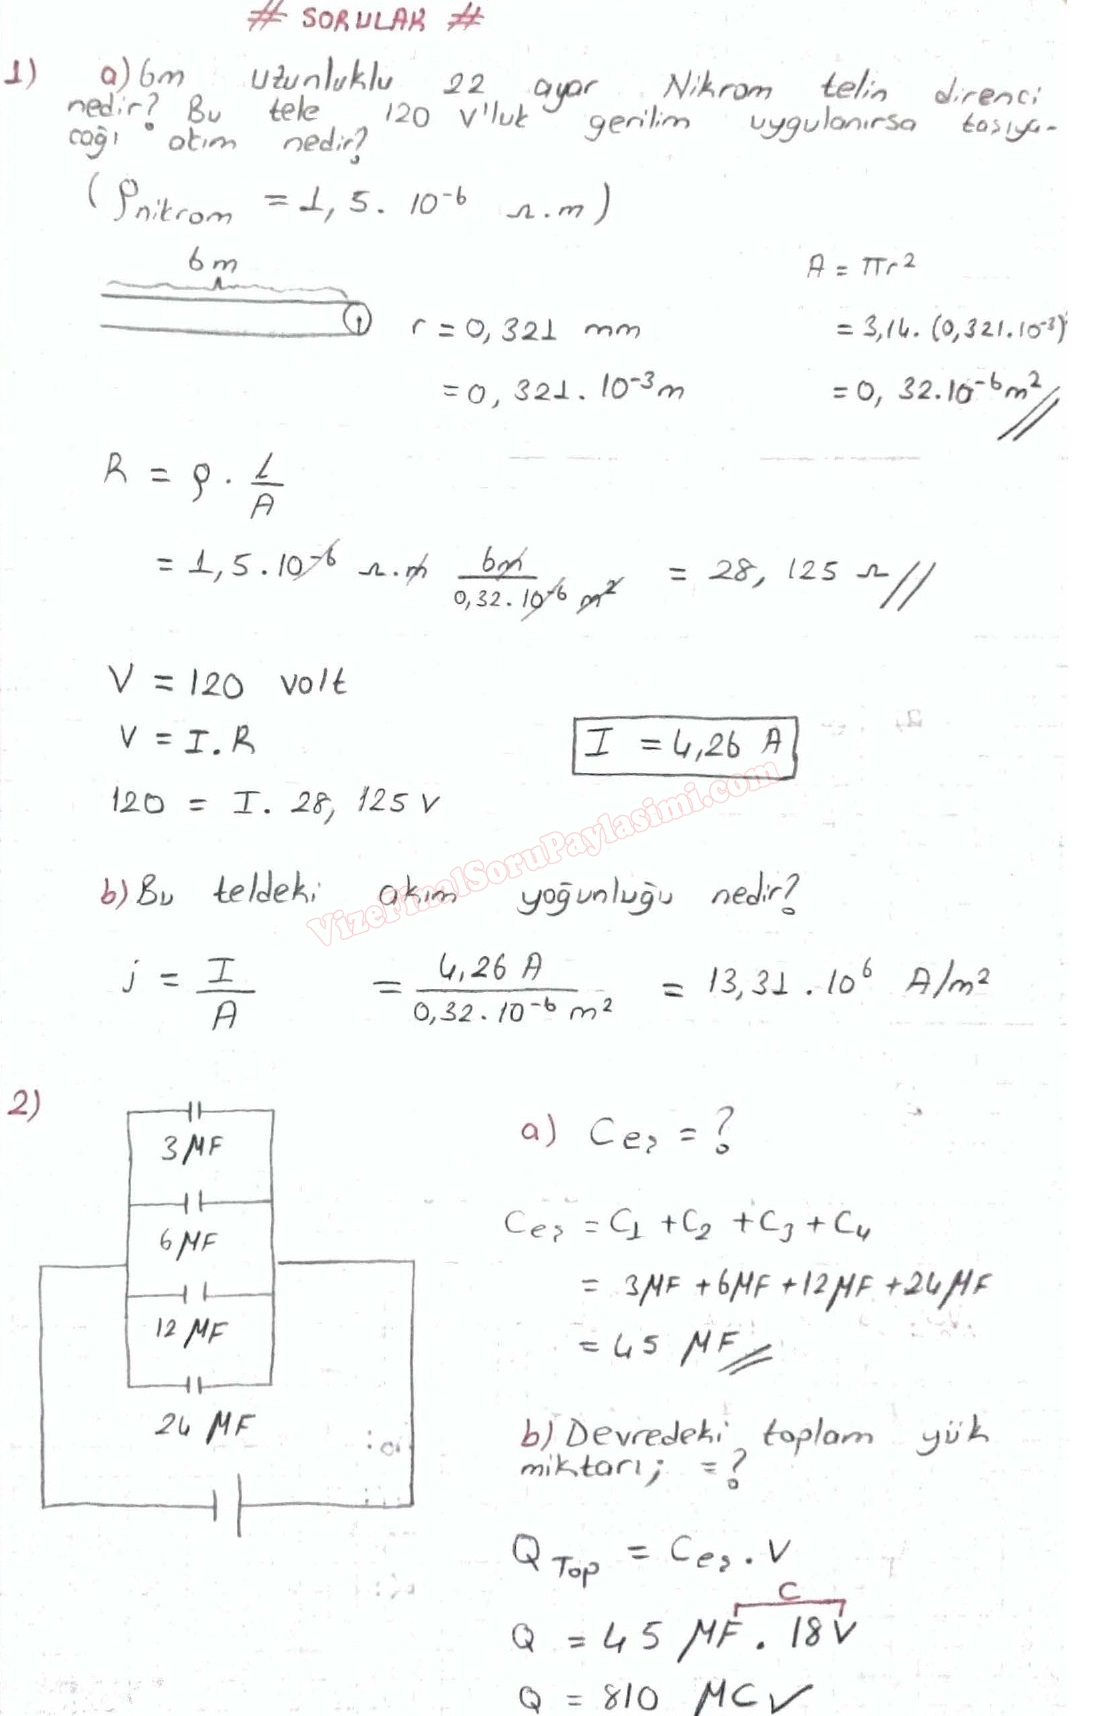 # SORULAR #
1) a) 6m uzunluklu 22 ayar Nikrom telin direnci
nedir? Bu tele 120 V'luk gerilim uygulanırsa taşıya-
cağı akım nedir?
(ρnikrom = 1,5. 10⁻⁶ Ω.m)
6m
r = 0,321 mm
= 0,321. 10⁻³m
A = πr²
= 3,14. (0,321.10⁻³)²
= 0,32.10⁻⁶m²
R = ρ. L/A
= 1,5.10⁻⁶ Ω.m 6m/0,32.10⁻⁶ m² = 28,125 Ω
V = 120 volt
V = I.R
I = 4,26 A
120 = I. 28,125 V
VizeFinalSoruPaylasimi.com
b) Bu teldeki akım yoğunluğu nedir?
j = I/A = 4,26 A/0,32.10⁻⁶ m² = 13,31.10⁶ A/m²
2)
3 MF
6 MF
12 MF
24 MF
a) Ceş = ?
Ceş = C1 + C2 + C3 + C4
= 3MF + 6MF + 12MF + 24MF
= 45 MF
b) Devredeki toplam yük
miktarı; = ?
Q Top = Ceş. V
C
Q = 45 MF. 18V
Q = 810 MC ✓